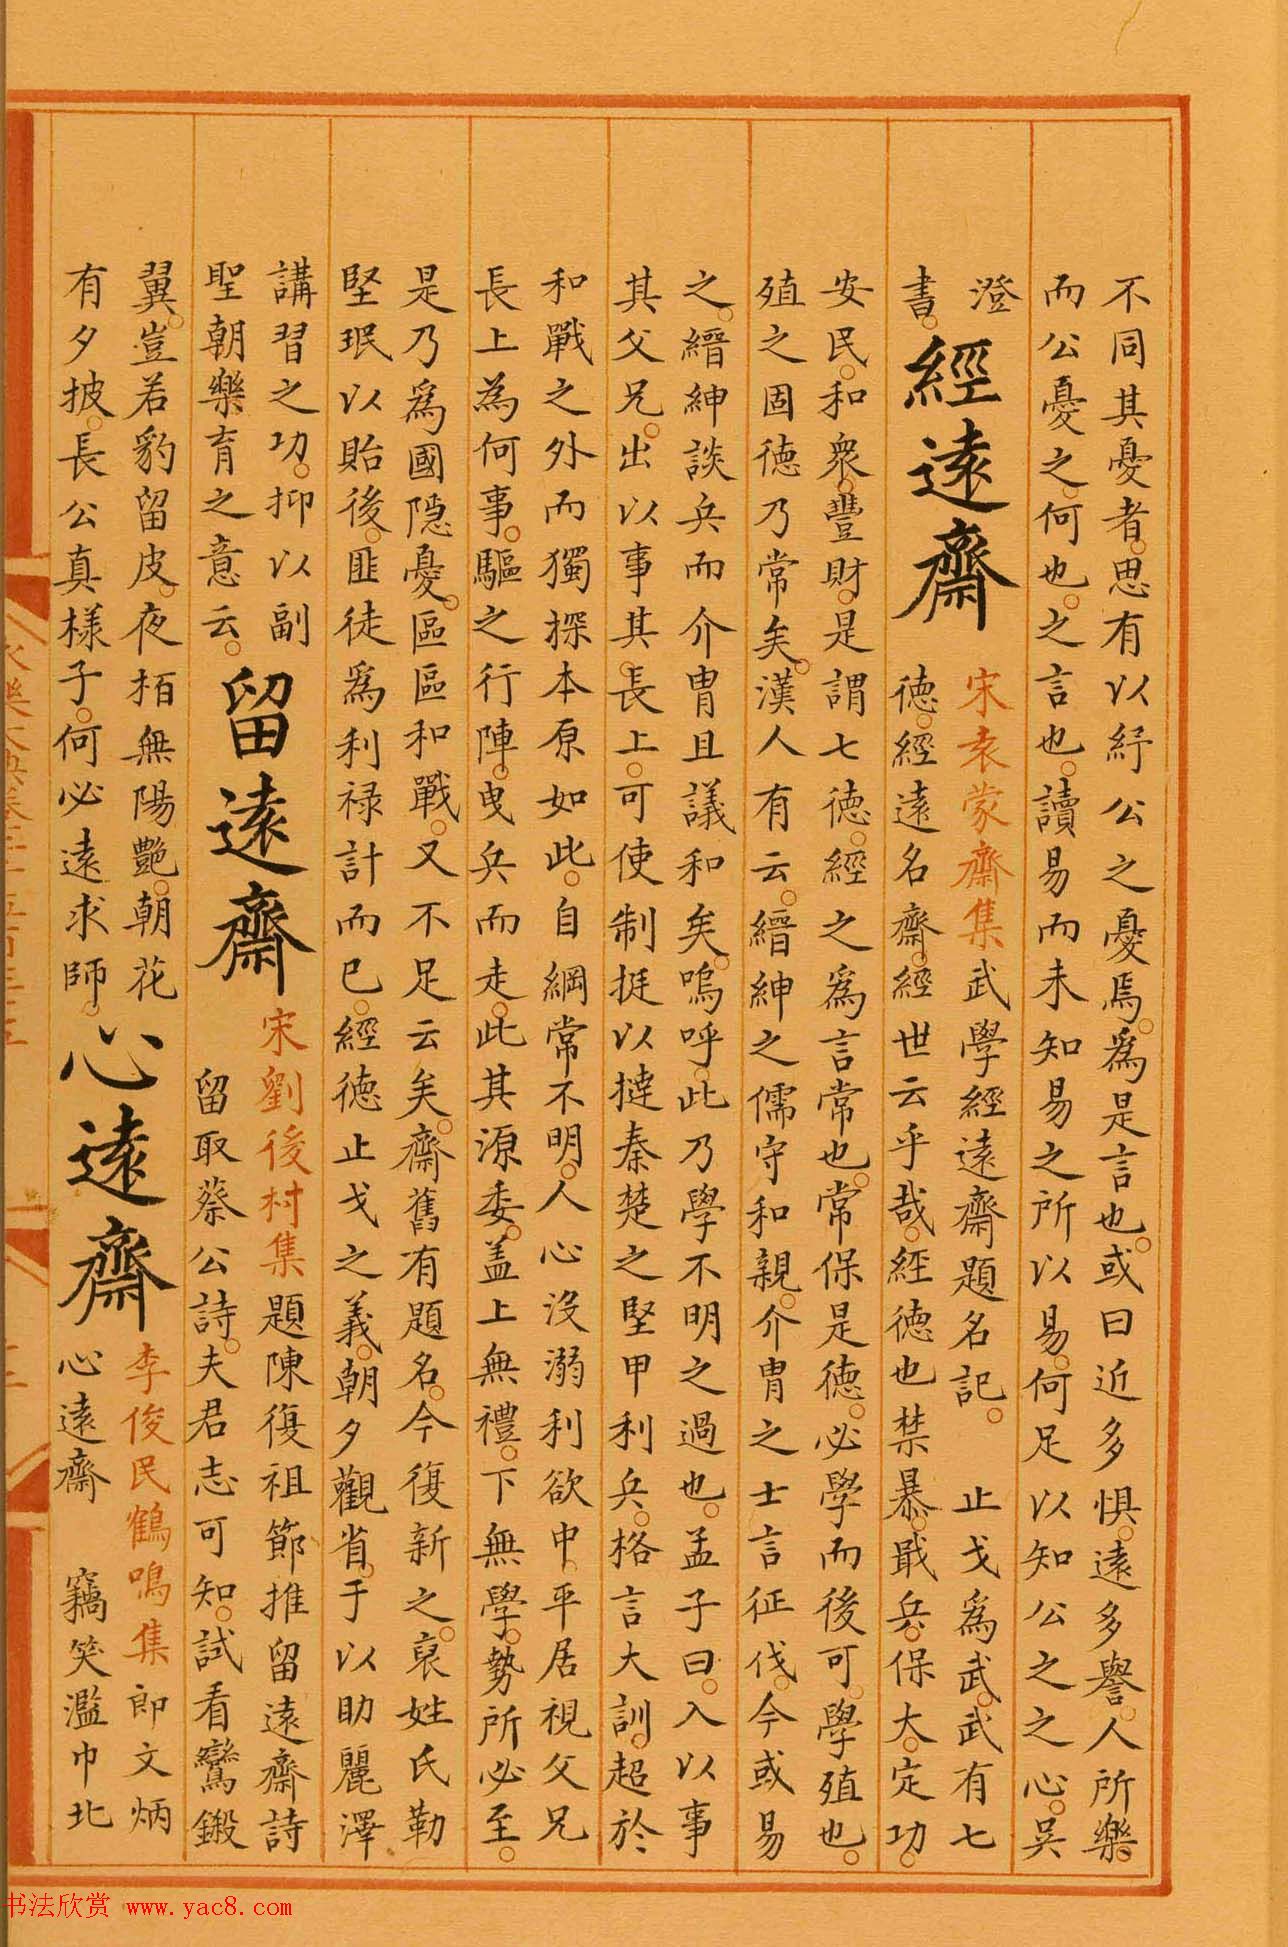 不同其憂者思有以紓公之憂焉為是言也或曰近多懼遠多譽人所樂
而公憂之何也之言也讀易而未知易之所以易何足以知公之之心吳
澄
書
經遠齋
宋袁蒙齋集武學經遠齋題名記 止戈為武武有七
德經遠名齋經世云乎哉經德也禁暴戢兵保大定功
安民和衆豐財是謂七德經之為言常也常保是德必學而後可學殖也
殖之固德乃常矣漢人有云縉紳之儒守和親介冑之士言征伐今或易
之縉紳談兵而介冑且議和矣嗚呼此乃學不明之過也孟子曰入以事
其父兄出以事其長上可使制挺以撻秦楚之堅甲利兵格言大訓超於
和戰之外而獨探本原如此自綱常不明人心沒溺利欲中平居視父兄
長上為何事驅之行陣曳兵而走此其源委蓋上無禮下無學勢所必至
是乃為國隱憂區區和戰又不足云矣齋舊有題名今復新之裒姓氏勒
堅珉以貽後匪徒為利祿計而已經德止戈之義朝夕觀省于以助麗澤
講習之功抑以副
聖朝樂育之意云
留遠齋
宋劉後村集題陳復祖節推留遠齋詩
留取蔡公詩夫君志可知試看鸞鎩
翼豈若豹留皮夜栢無陽艷朝花
有夕披長公真樣子何必遠求師
心遠齋
李俊民鶴鳴集郎文炳
心遠齋 竊笑濫巾北
书法欣赏 www.yac8.com